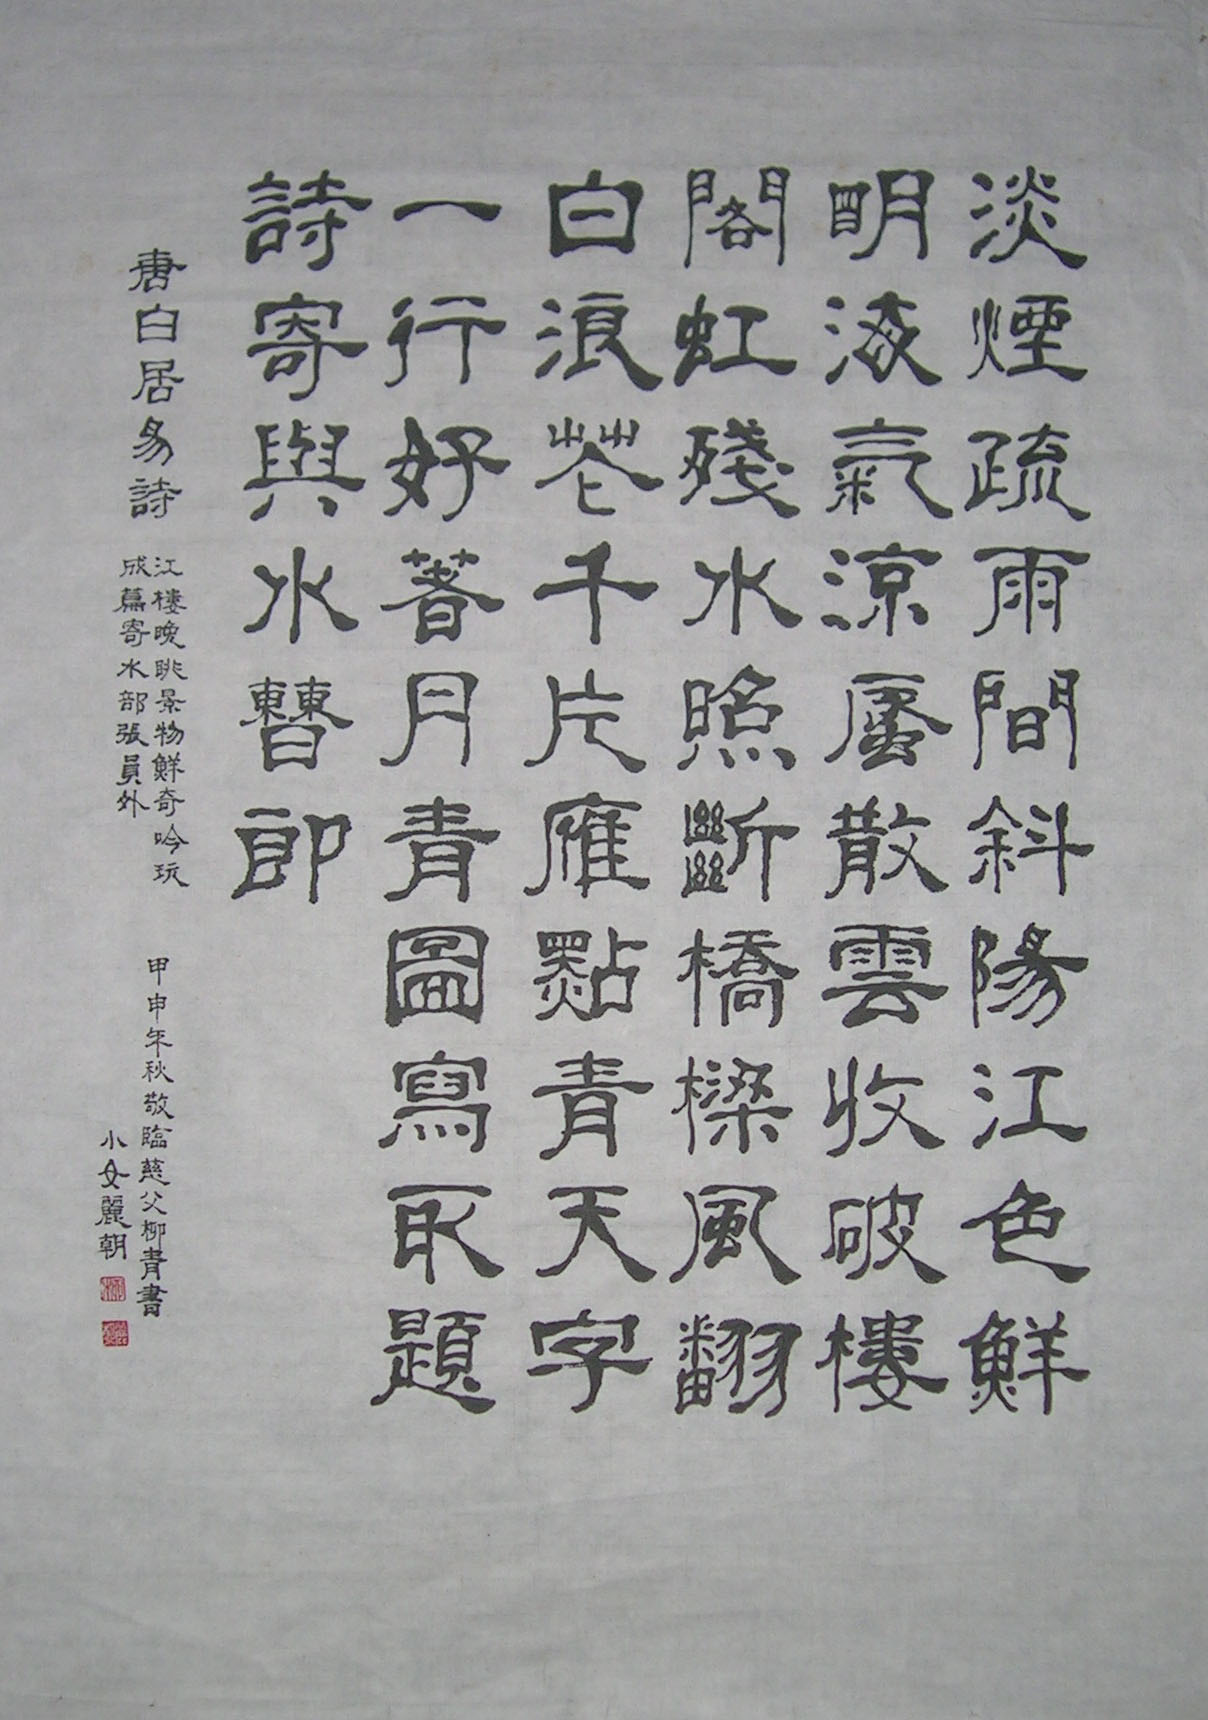 淡煙疏雨間斜陽江色鮮
明海氣涼蜃散雲收破樓
閣虹殘水照斷橋樑風翻
白浪花千片雁點青天字
一行好著丹青圖寫取題
詩寄與水曹郎
唐白居易詩
江樓晚眺景物鮮奇吟玩
成篇寄水部張員外
甲申年秋敬臨慈父柳青書
小女麗朝